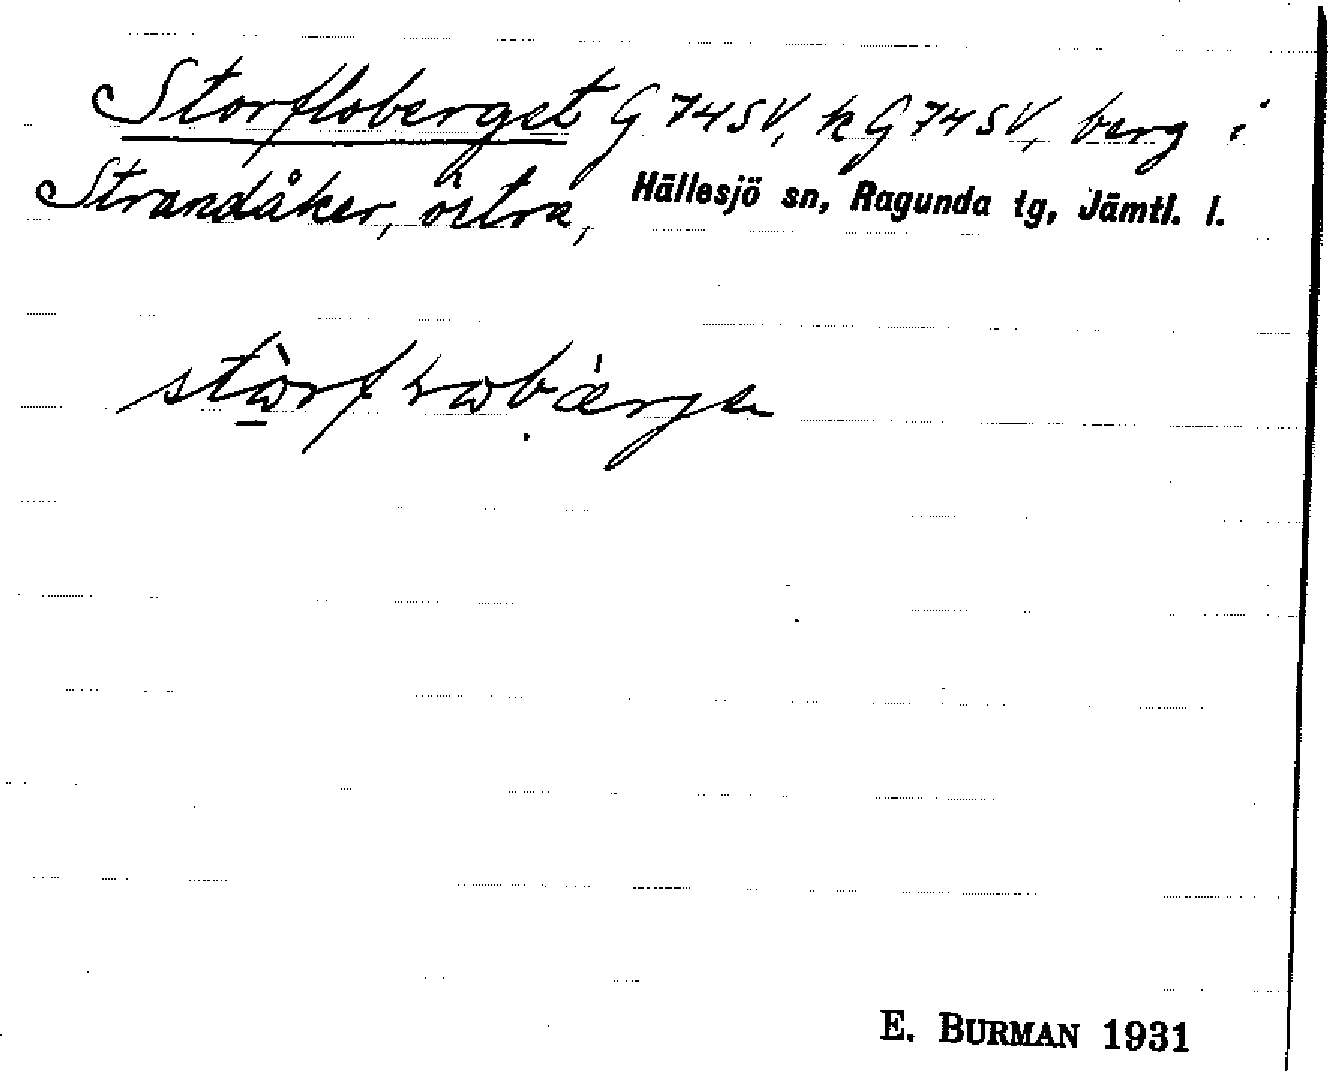 Storfloberget G 74 SV, k G 74 SV, berg i
Strandåker, östra, Hällesjö sn, Ragunda tg, Jämtl. l.
E. BURMAN 1931